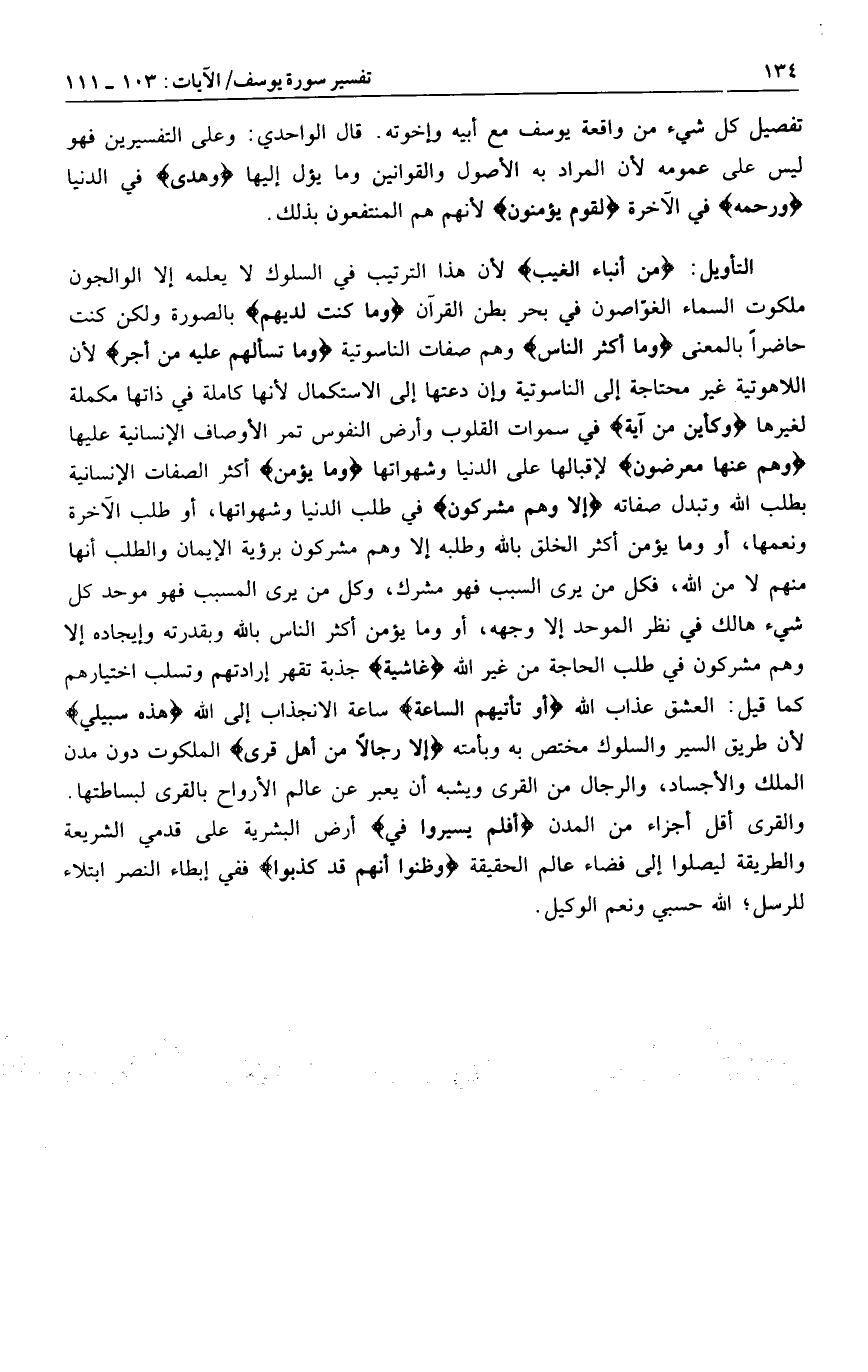 ١٣٤
تفسير سورة يوسف/ الآيات: ١٠٣ ـ ١١١
تفصيل كل شيء من واقعة يوسف مع أبيه وإخوته. قال الواحدي: وعلى التفسيرين فهو
ليس على عمومه لأن المراد به الأصول والقوانين وما يؤل إليها ﴿وهدى﴾ في الدنيا
﴿ورحمه﴾ في الآخرة ﴿لقوم يؤمنون﴾ لأنهم هم المنتفعون بذلك.
التأويل: ﴿من أنباء الغيب﴾ لأن هذا الترتيب في السلوك لا يعلمه إلا الوالجون
ملكوت السماء الغوّاصون في بحر بطن القرآن ﴿وما كنت لديهم﴾ بالصورة ولكن كنت
حاضراً بالمعنى ﴿وما أكثر الناس﴾ وهم صفات الناسوتية ﴿وما تسألهم عليه من أجر﴾ لأن
اللاهوتية غير محتاجة إلى الناسوتية وإن دعتها إلى الاستكمال لأنها كاملة في ذاتها مكملة
لغيرها ﴿وكأين من آية﴾ في سموات القلوب وأرض النفوس تمر الأوصاف الإنسانية عليها
﴿وهم عنها معرضون﴾ لإقبالها على الدنيا وشهواتها ﴿وما يؤمن﴾ أكثر الصفات الإنسانية
بطلب الله وتبدل صفاته ﴿إلا وهم مشركون﴾ في طلب الدنيا وشهواتها، أو طلب الآخرة
ونعمها، أو وما يؤمن أكثر الخلق بالله وطلبه إلا وهم مشركون برؤية الإيمان والطلب أنها
منهم لا من الله، فكل من يرى السبب فهو مشرك، وكل من يرى المسبب فهو موحد كل
شيء هالك في نظر الموحد إلا وجهه، أو وما يؤمن أكثر الناس بالله وبقدرته وإيجاده إلا
وهم مشركون في طلب الحاجة من غير الله ﴿غاشية﴾ جذبة تقهر إرادتهم وتسلب اختيارهم
كما قيل: العشق عذاب الله ﴿أو تأتيهم الساعة﴾ ساعة الانجذاب إلى الله ﴿هذه سبيلي﴾
لأن طريق السير والسلوك مختص به وبأمته ﴿إلا رجالاً من أهل قرى﴾ الملكوت دون مدن
الملك والأجساد، والرجال من القرى ويشبه أن يعبر عن عالم الأرواح بالقرى لبساطتها.
والقرى أقل أجزاء من المدن ﴿أفلم يسيروا في﴾ أرض البشرية على قدمي الشريعة
والطريقة ليصلوا إلى فضاء عالم الحقيقة ﴿وظنوا أنهم قد كذبوا﴾ ففي إبطاء النصر ابتلاء
للرسل؛ الله حسبي ونعم الوكيل.